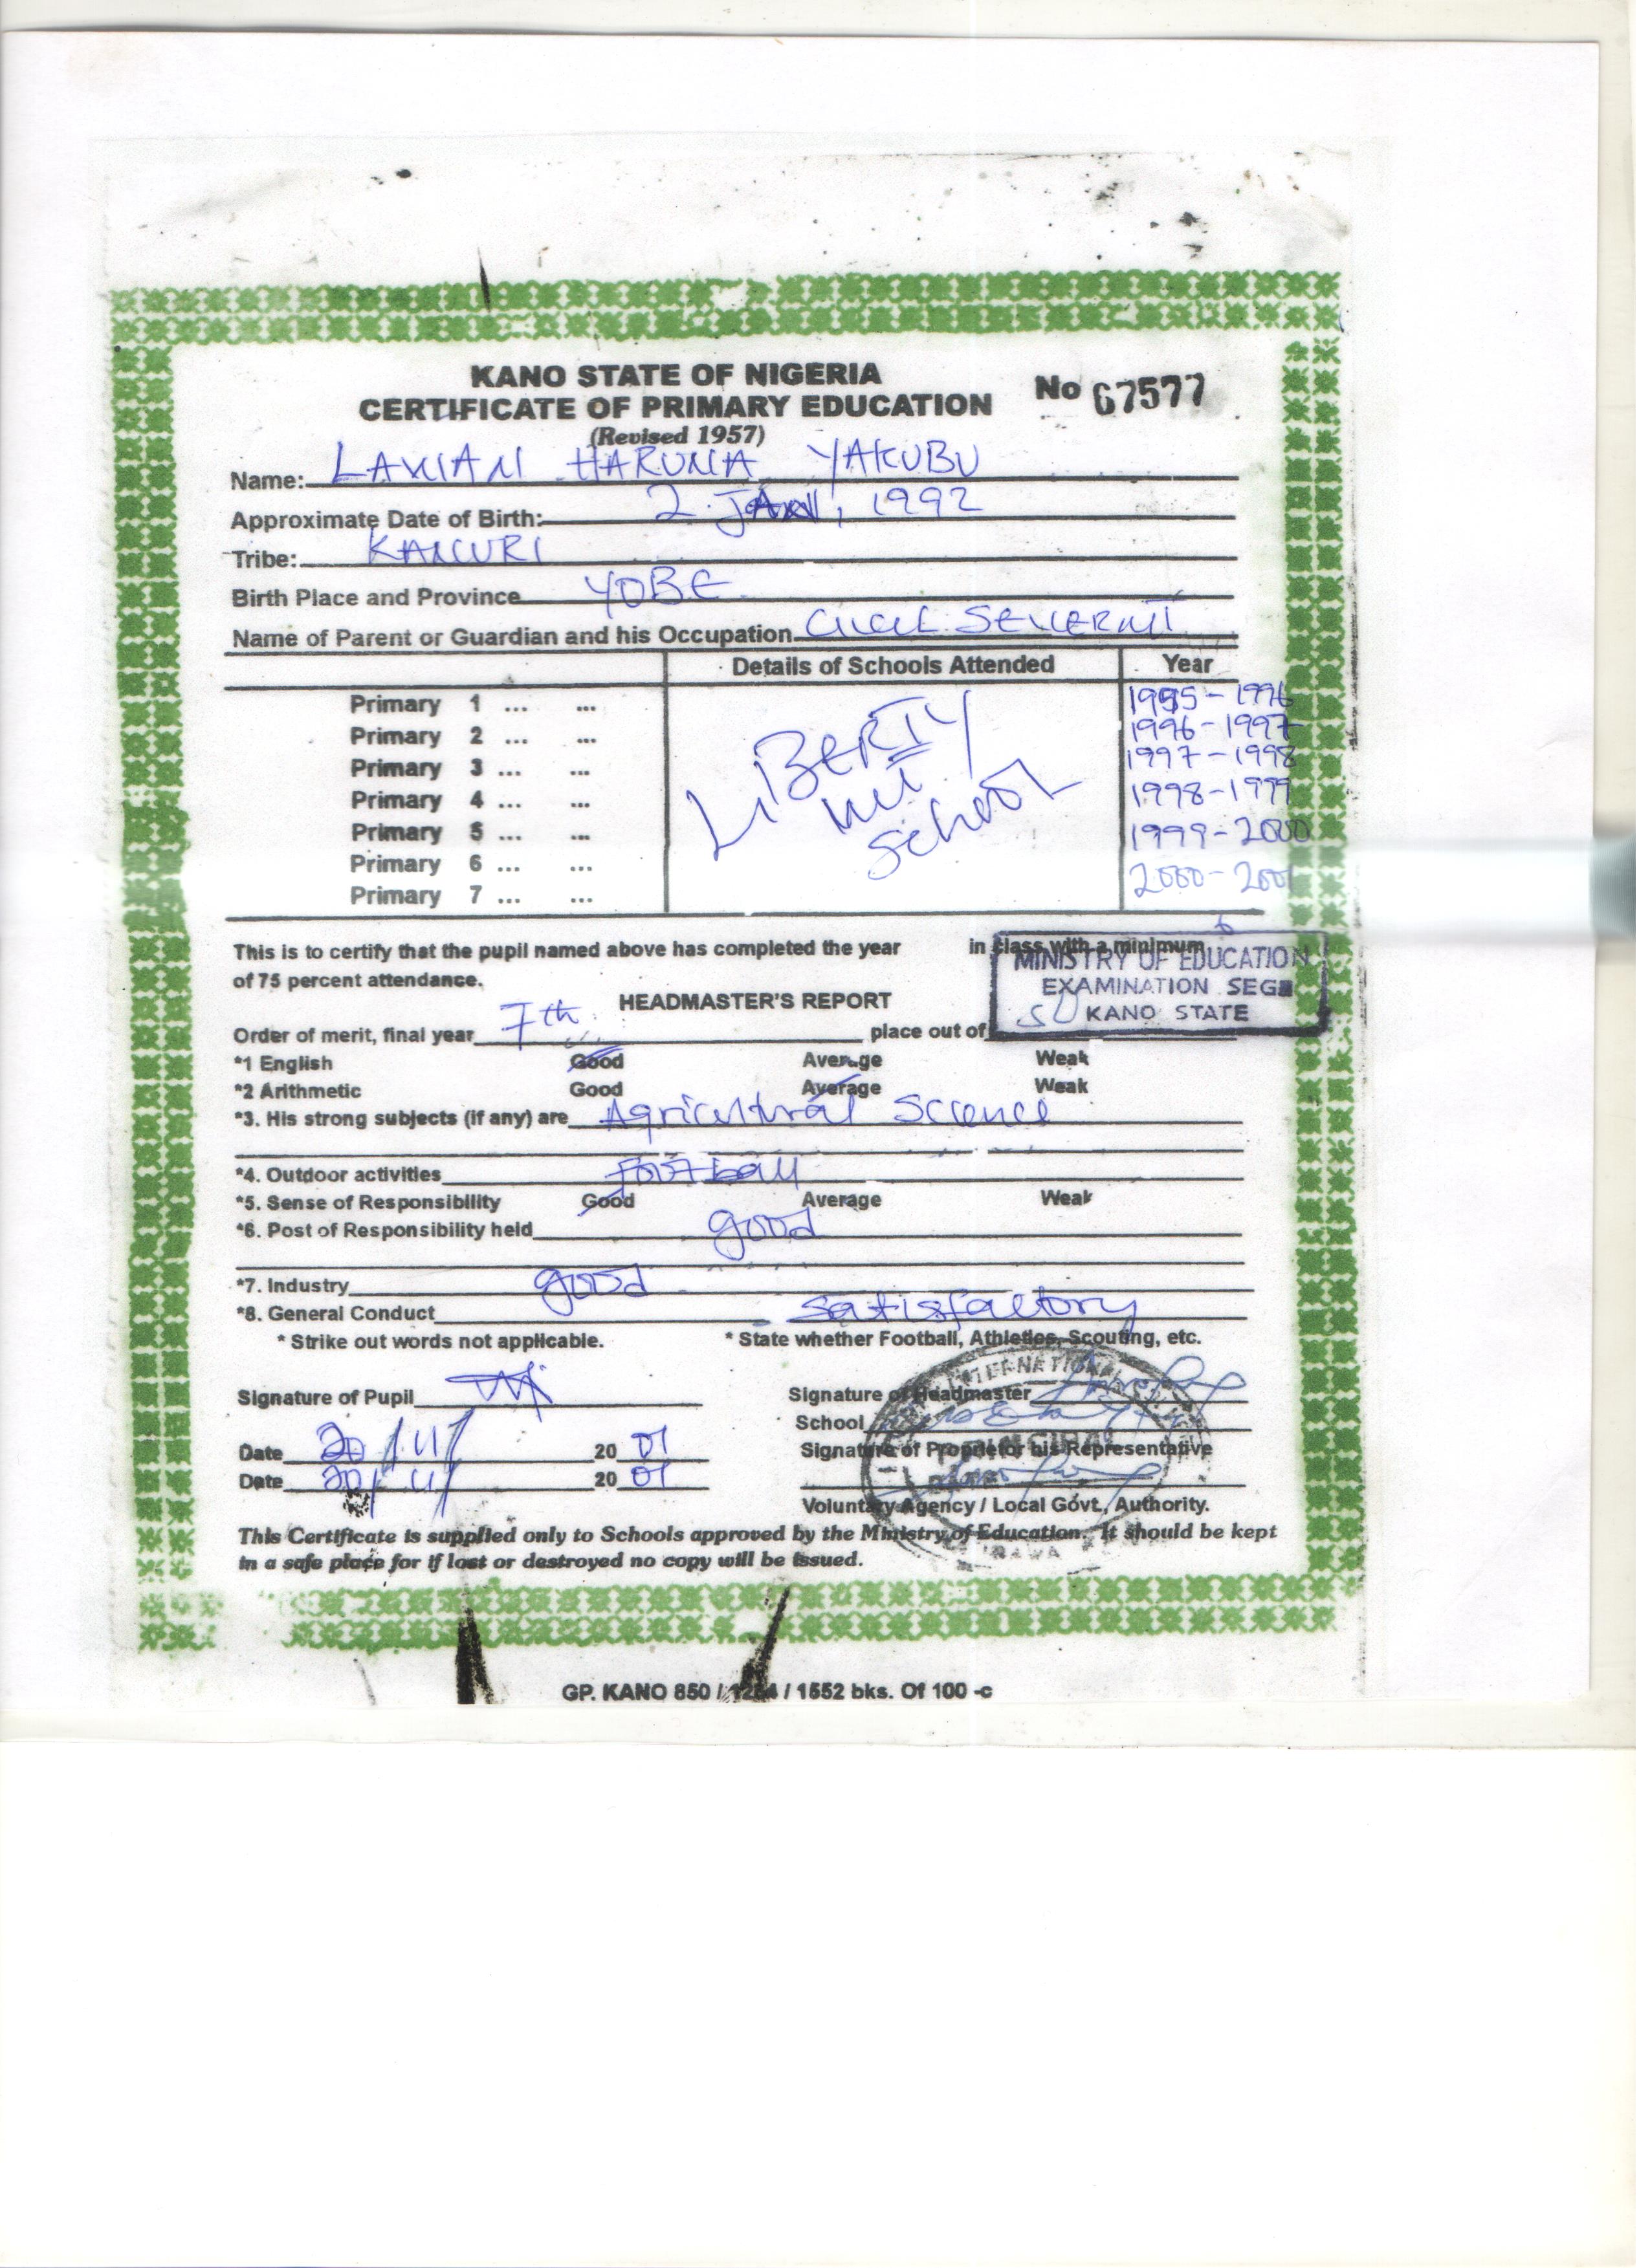 KANO STATE OF NIGERIA
CERTIFICATE OF PRIMARY EDUCATION
No 67577
(Revised 1957)
Name: LAWAN HARUNA YAKUBU
Approximate Date of Birth: 2. JAN, 1992
Tribe: KANURI
Birth Place and Province YOBE
Name of Parent or Guardian and his Occupation CIVIL SERVENT
Details of Schools Attended Year
Primary 1 ... ... 1995-1996
Primary 2 ... ... 1996-1997
Primary 3 ... ... 1997-1998
Primary 4 ... ... 1998-1999
Primary 5 ... ... 1999-2000
Primary 6 ... ... 2000-2001
Primary 7 ... ...
LIBERTY
INT
SCHOOL
This is to certify that the pupil named above has completed the year in class with a minimum 6
of 75 percent attendance.
MINISTRY OF EDUCATION
EXAMINATION SEG
KANO STATE
HEADMASTER'S REPORT
Order of merit, final year 7th place out of 50
*1 English Good Average Weak
*2 Arithmetic Good Average Weak
*3. His strong subjects (if any) are Agricultural Science
*4. Outdoor activities Football
*5. Sense of Responsibility Good Average Weak
*6. Post of Responsibility held good
*7. Industry good
*8. General Conduct Satisfactory
* Strike out words not applicable. * State whether Football, Athletics, Scouting, etc.
Signature of Pupil Signature of Headmaster
School
Date 20/11/ 20 01 Signature of Proprietor his Representative
Date 20/11/ 20 01
Voluntary Agency / Local Govt., Authority.
INTERNATIONAL
PRINCIPAL
This Certificate is supplied only to Schools approved by the Ministry of Education. It should be kept
in a safe place for if lost or destroyed no copy will be issued.
GP. KANO 850 / / 1552 bks. Of 100 -c